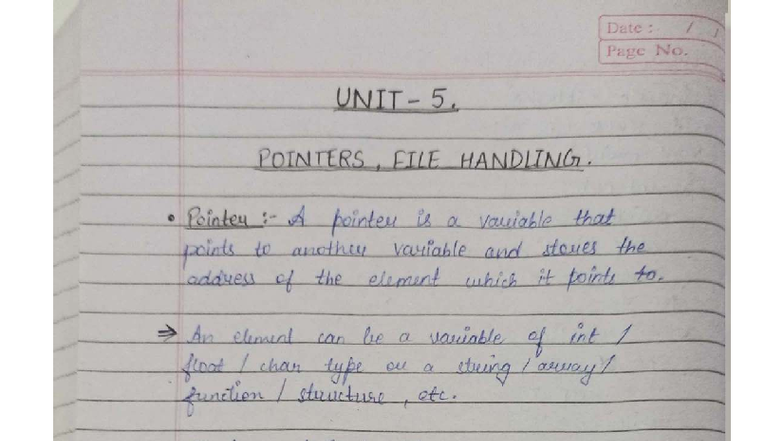 Date :- / /
Page No.
UNIT - 5.
POINTERS, FILE HANDLING.
• Pointer :- A pointer is a variable that
points to another variable and stores the
address of the element which it points to.
⇒ An element can be a variable of int /
float / char type or a string / array /
function / structure, etc.